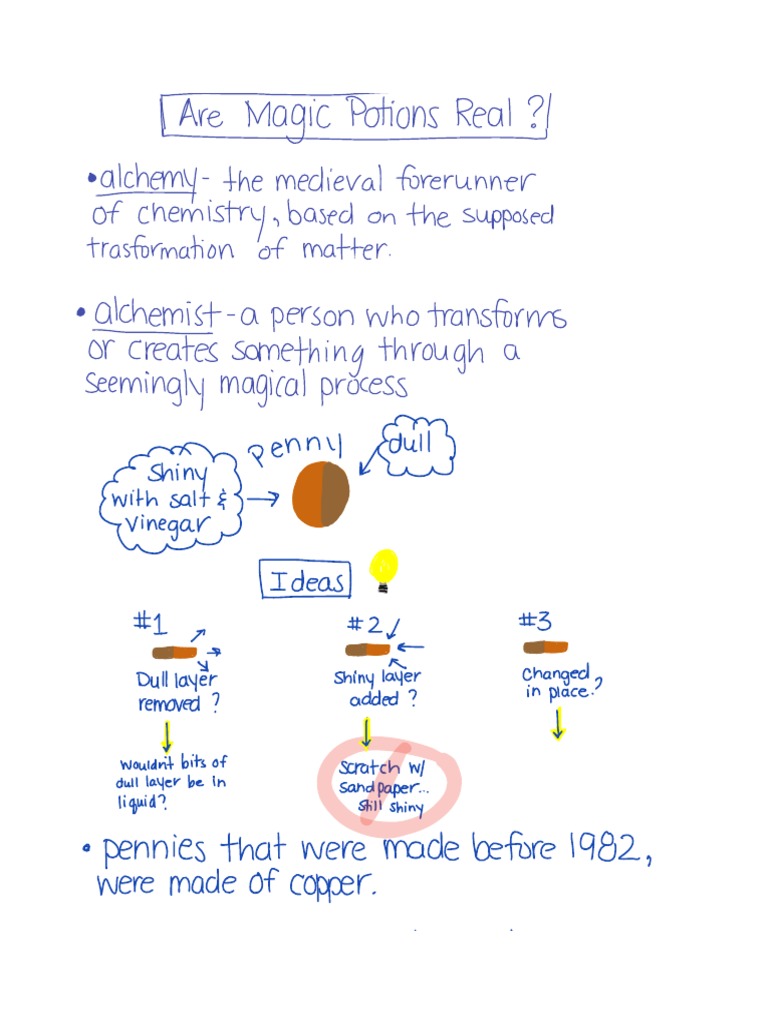 Are Magic Potions Real?
• alchemy - the medieval forerunner
of chemistry, based on the supposed
trasformation of matter.
• alchemist - a person who transforms
or creates something through a
seemingly magical process
penny
dull
Shiny
with salt &
vinegar
Ideas
#1
Dull layer
removed?
wouldn't bits of
dull layer be in
liquid?
#2
Shiny layer
added?
Scratch w/
sandpaper...
still shiny
#3
Changed
in place?
• pennies that were made before 1982,
were made of copper.